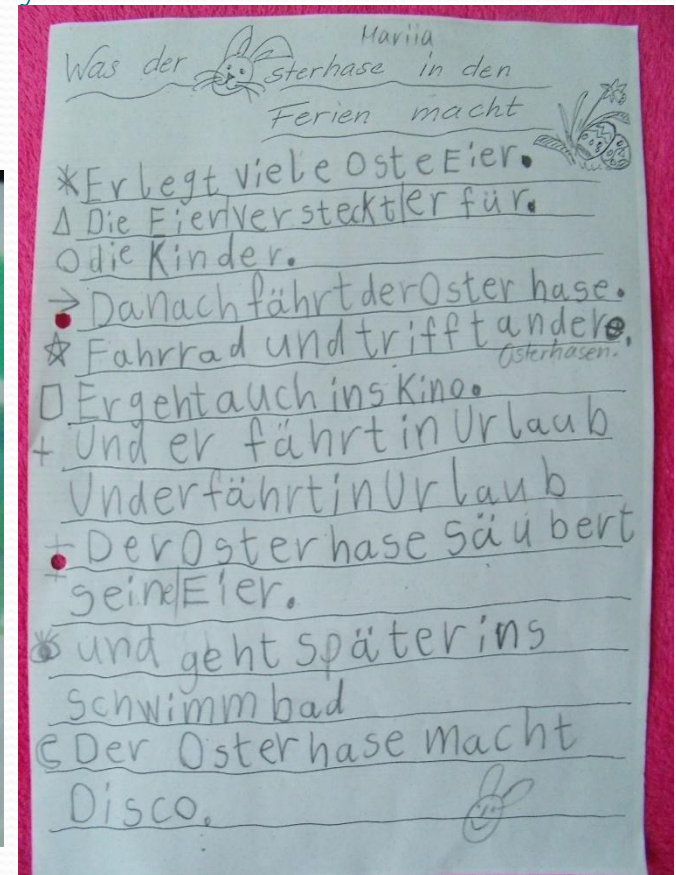 Mariia
Was der sterhase in den
Ferien macht
Er legt viele OsteEier.
Die Eier|versteckt|er für.
die Kinder.
Danach fährt der Oster hase.
Fahrrad und trifft andere,
Osterhasen.
Er geht auch ins Kino.
+ Und er fährt in Urlaub
Und er fährt in Urlaub
+ Der Osterhase säubert
seine|Eier.
und geht später ins
schwimmbad
Der Osterhase macht
Disco.